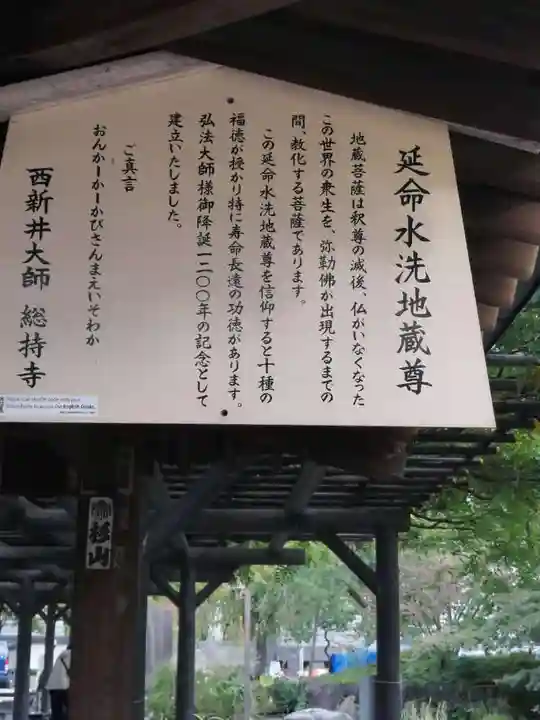 延命水洗地蔵尊
地蔵菩薩は釈尊の滅後、仏がいなくなった
この世界の衆生を、弥勒佛が出現するまでの
間、教化する菩薩であります。
この延命水洗地蔵尊を信仰すると十種の
福徳が授かり特に寿命長遠の功徳があります。
弘法大師様御降誕一二〇〇年の記念として
建立いたしました。
ご真言
おんかーかーかびさんまえいそわか
西新井大師 総持寺
English Guide.
杉山